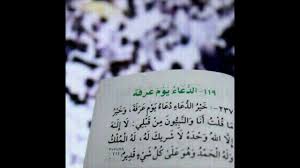 ١١٩- الدُّعَاءُ يَوْمَ عَرَفَةَ
٢٣٧- خَيْرُ الدُّعَاءِ دُعَاءُ يَوْمِ عَرَفَةَ، وَخَيْرُ
مَا قُلْتُ أَنَا وَالنَّبِيُّونَ مِنْ قَبْلِي: لَا إِلَهَ
إِلَّا اللهُ وَحْدَهُ لَا شَرِيكَ لَهُ، لَهُ الْمُلْكُ
وَلَهُ الْحَمْدُ وَهُوَ عَلَى كُلِّ شَيْءٍ قَدِيرٌ